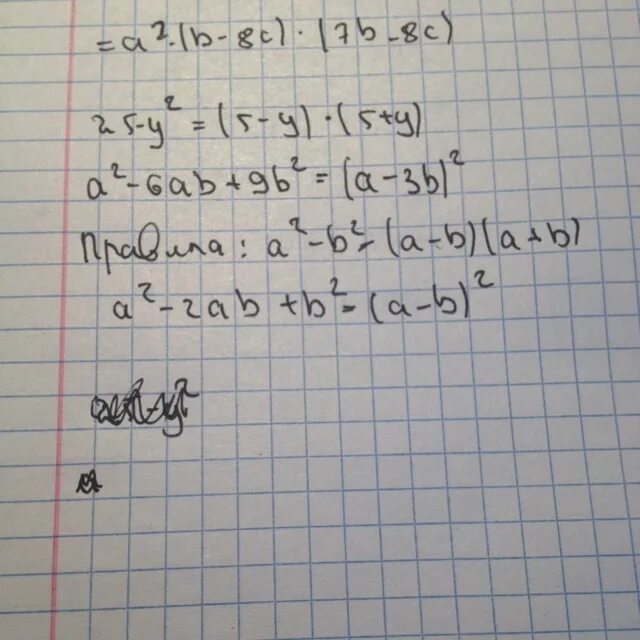 =a²·(b-8c)·(7b-8c)
25-y²=(5-y)·(5+y)
a²-6ab+9b²=(a-3b)²
Правила: a²-b²=(a-b)(a+b)
a²-2ab+b²=(a-b)²